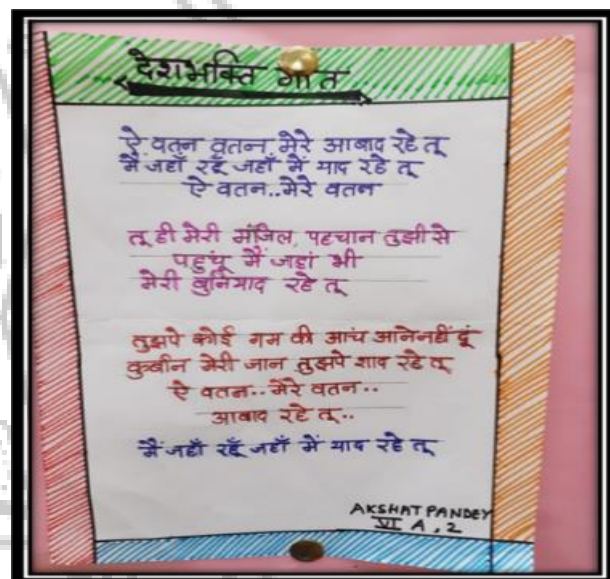 देशभक्ति गीत
ऐ वतन वतन मेरे आबाद रहे तू
मैं जहाँ रहूँ जहाँ में याद रहे तू
ऐ वतन..मेरे वतन
तू ही मेरी मंजिल, पहचान तुझी से
पहुंचू मैं जहां भी
मेरी बुनियाद रहे तू
तुझपे कोई गम की आंच आनेनहीं दूं
कुर्बान मेरी जान तुझपे शाद रहे तू
ऐ वतन..मेरे वतन..
आबाद रहे तू..
मैं जहाँ रहूँ जहाँ में याद रहे तू
AKSHAT PANDEY
VI A, 2